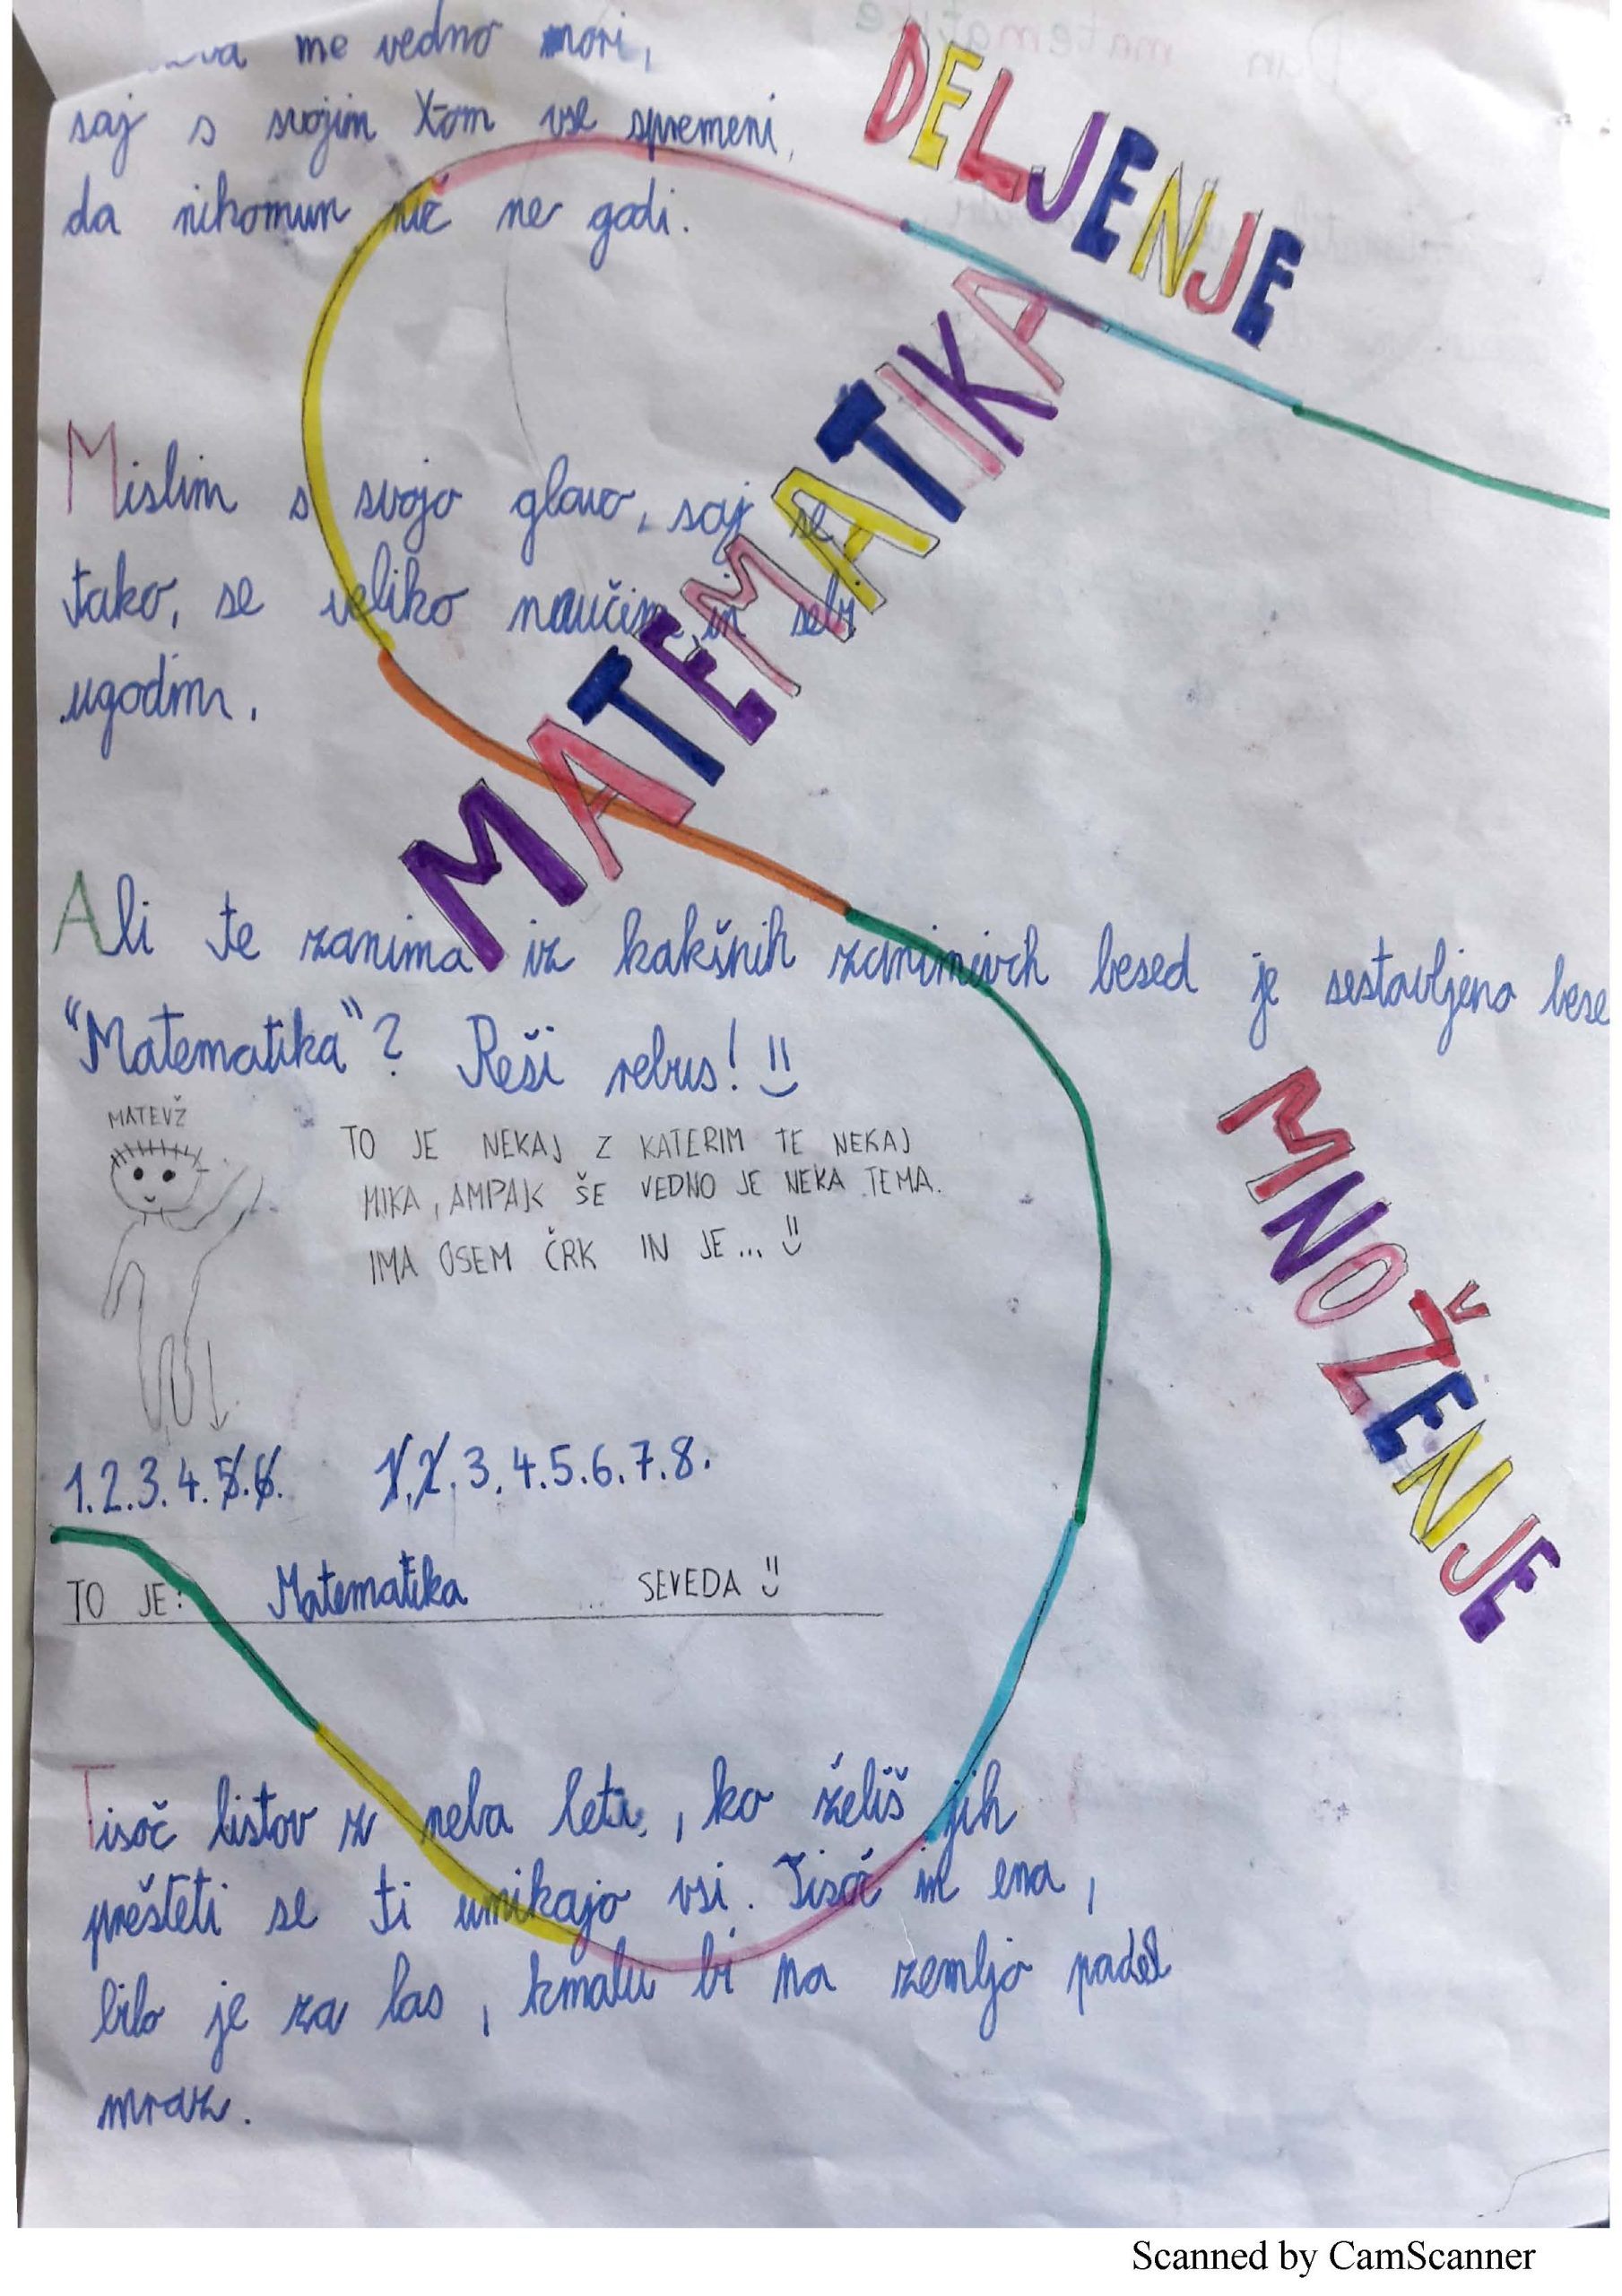 me vedno mori,
saj s svojim Xom vse spremeni,
da nikomur nič ne godi.
DELJENJE
MATEMATIKA
Mislim s svojo glavo, saj se
tako, se veliko naučim, in sebi
ugodim.
Ali te zanima iz kakšnih zanimivih besed je sestavljena bese
"Matematika"? Reši rebus!
MATEVŽ
TO JE NEKAJ Z KATERIM TE NEKAJ
MIKA, AMPAK ŠE VEDNO JE NEKA TEMA.
IMA OSEM ČRK IN JE...
MNOŽENJE
1.2.3.4.5.6. 1.2.3.4.5.6.7.8.
TO JE: Matematika ... SEVEDA
Tisoč listov z neba leti, ko želiš jih
prešteti se ti umikajo vsi. Tisoč in ena,
bilo je za las, kmalu bi na zemljo padel
mraz.
Scanned by CamScanner